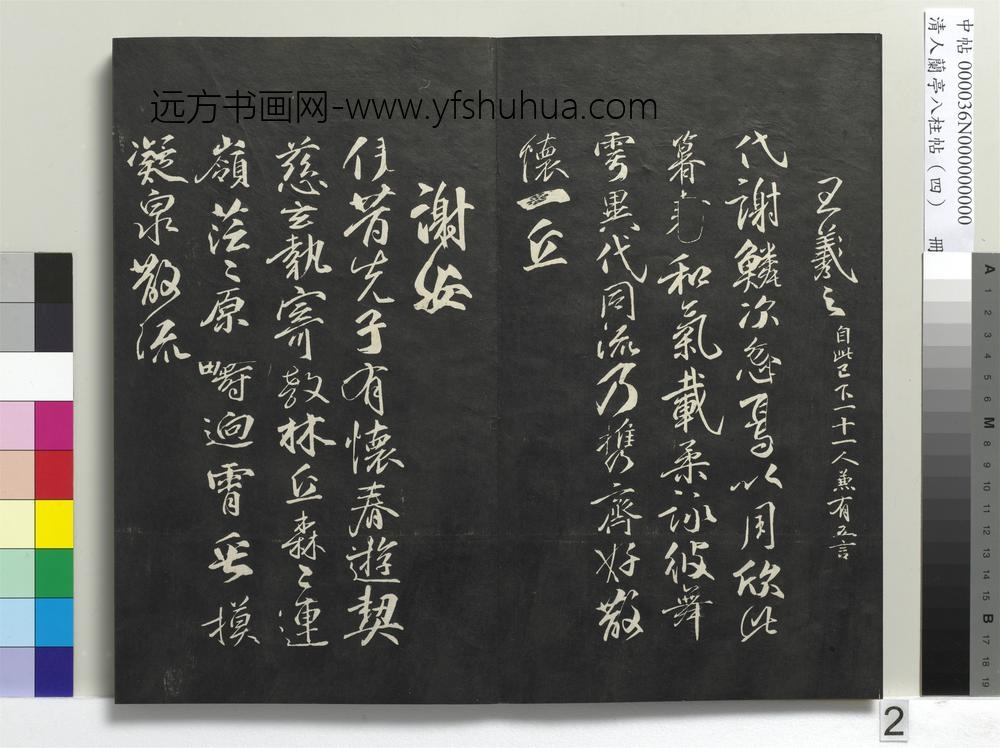 远方书画网-www.yfshuhua.com
中帖 000036N000000000
清人蘭亭八柱帖（四） 冊
王羲之 自此已下一十一人兼有五言
代謝鱗次忽焉以周欣此
暮春和氣載柔詠彼舞
雩異代同流乃携齊好散
懷一丘
謝安
伊昔先子有懷春遊契
茲言執寄敖林丘森〻連
嶺茫〻原疇迥霄垂
凝泉散流
2
A 1 2 3 4 5 6 M 8 9 10 11 12 13 14 15 B 17 18 19